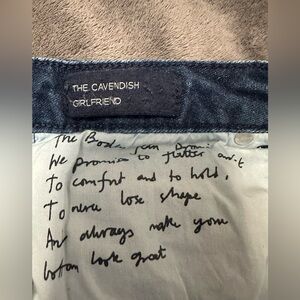 THE CAVENDISH
GIRLFRIEND
The Boden jean promise
We promise to flatter and
To comfort and to hold,
To never lose shape
And always make your
bottom look great